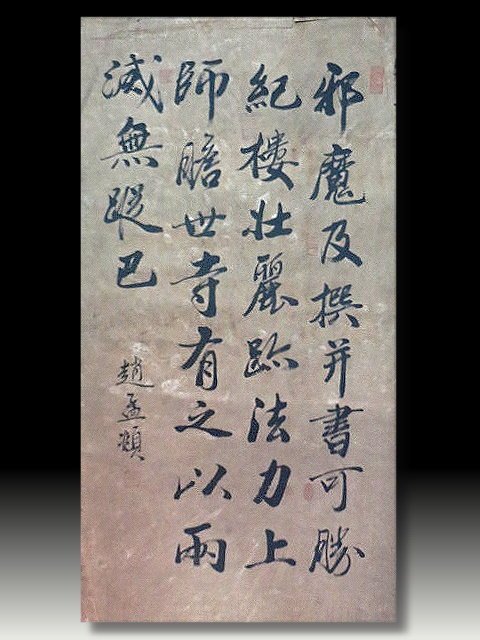 邪魔及撰并書可勝
紀樓壯麗跡法力上
師瞻世寺有之以兩
滅無蹤巴
趙孟頫